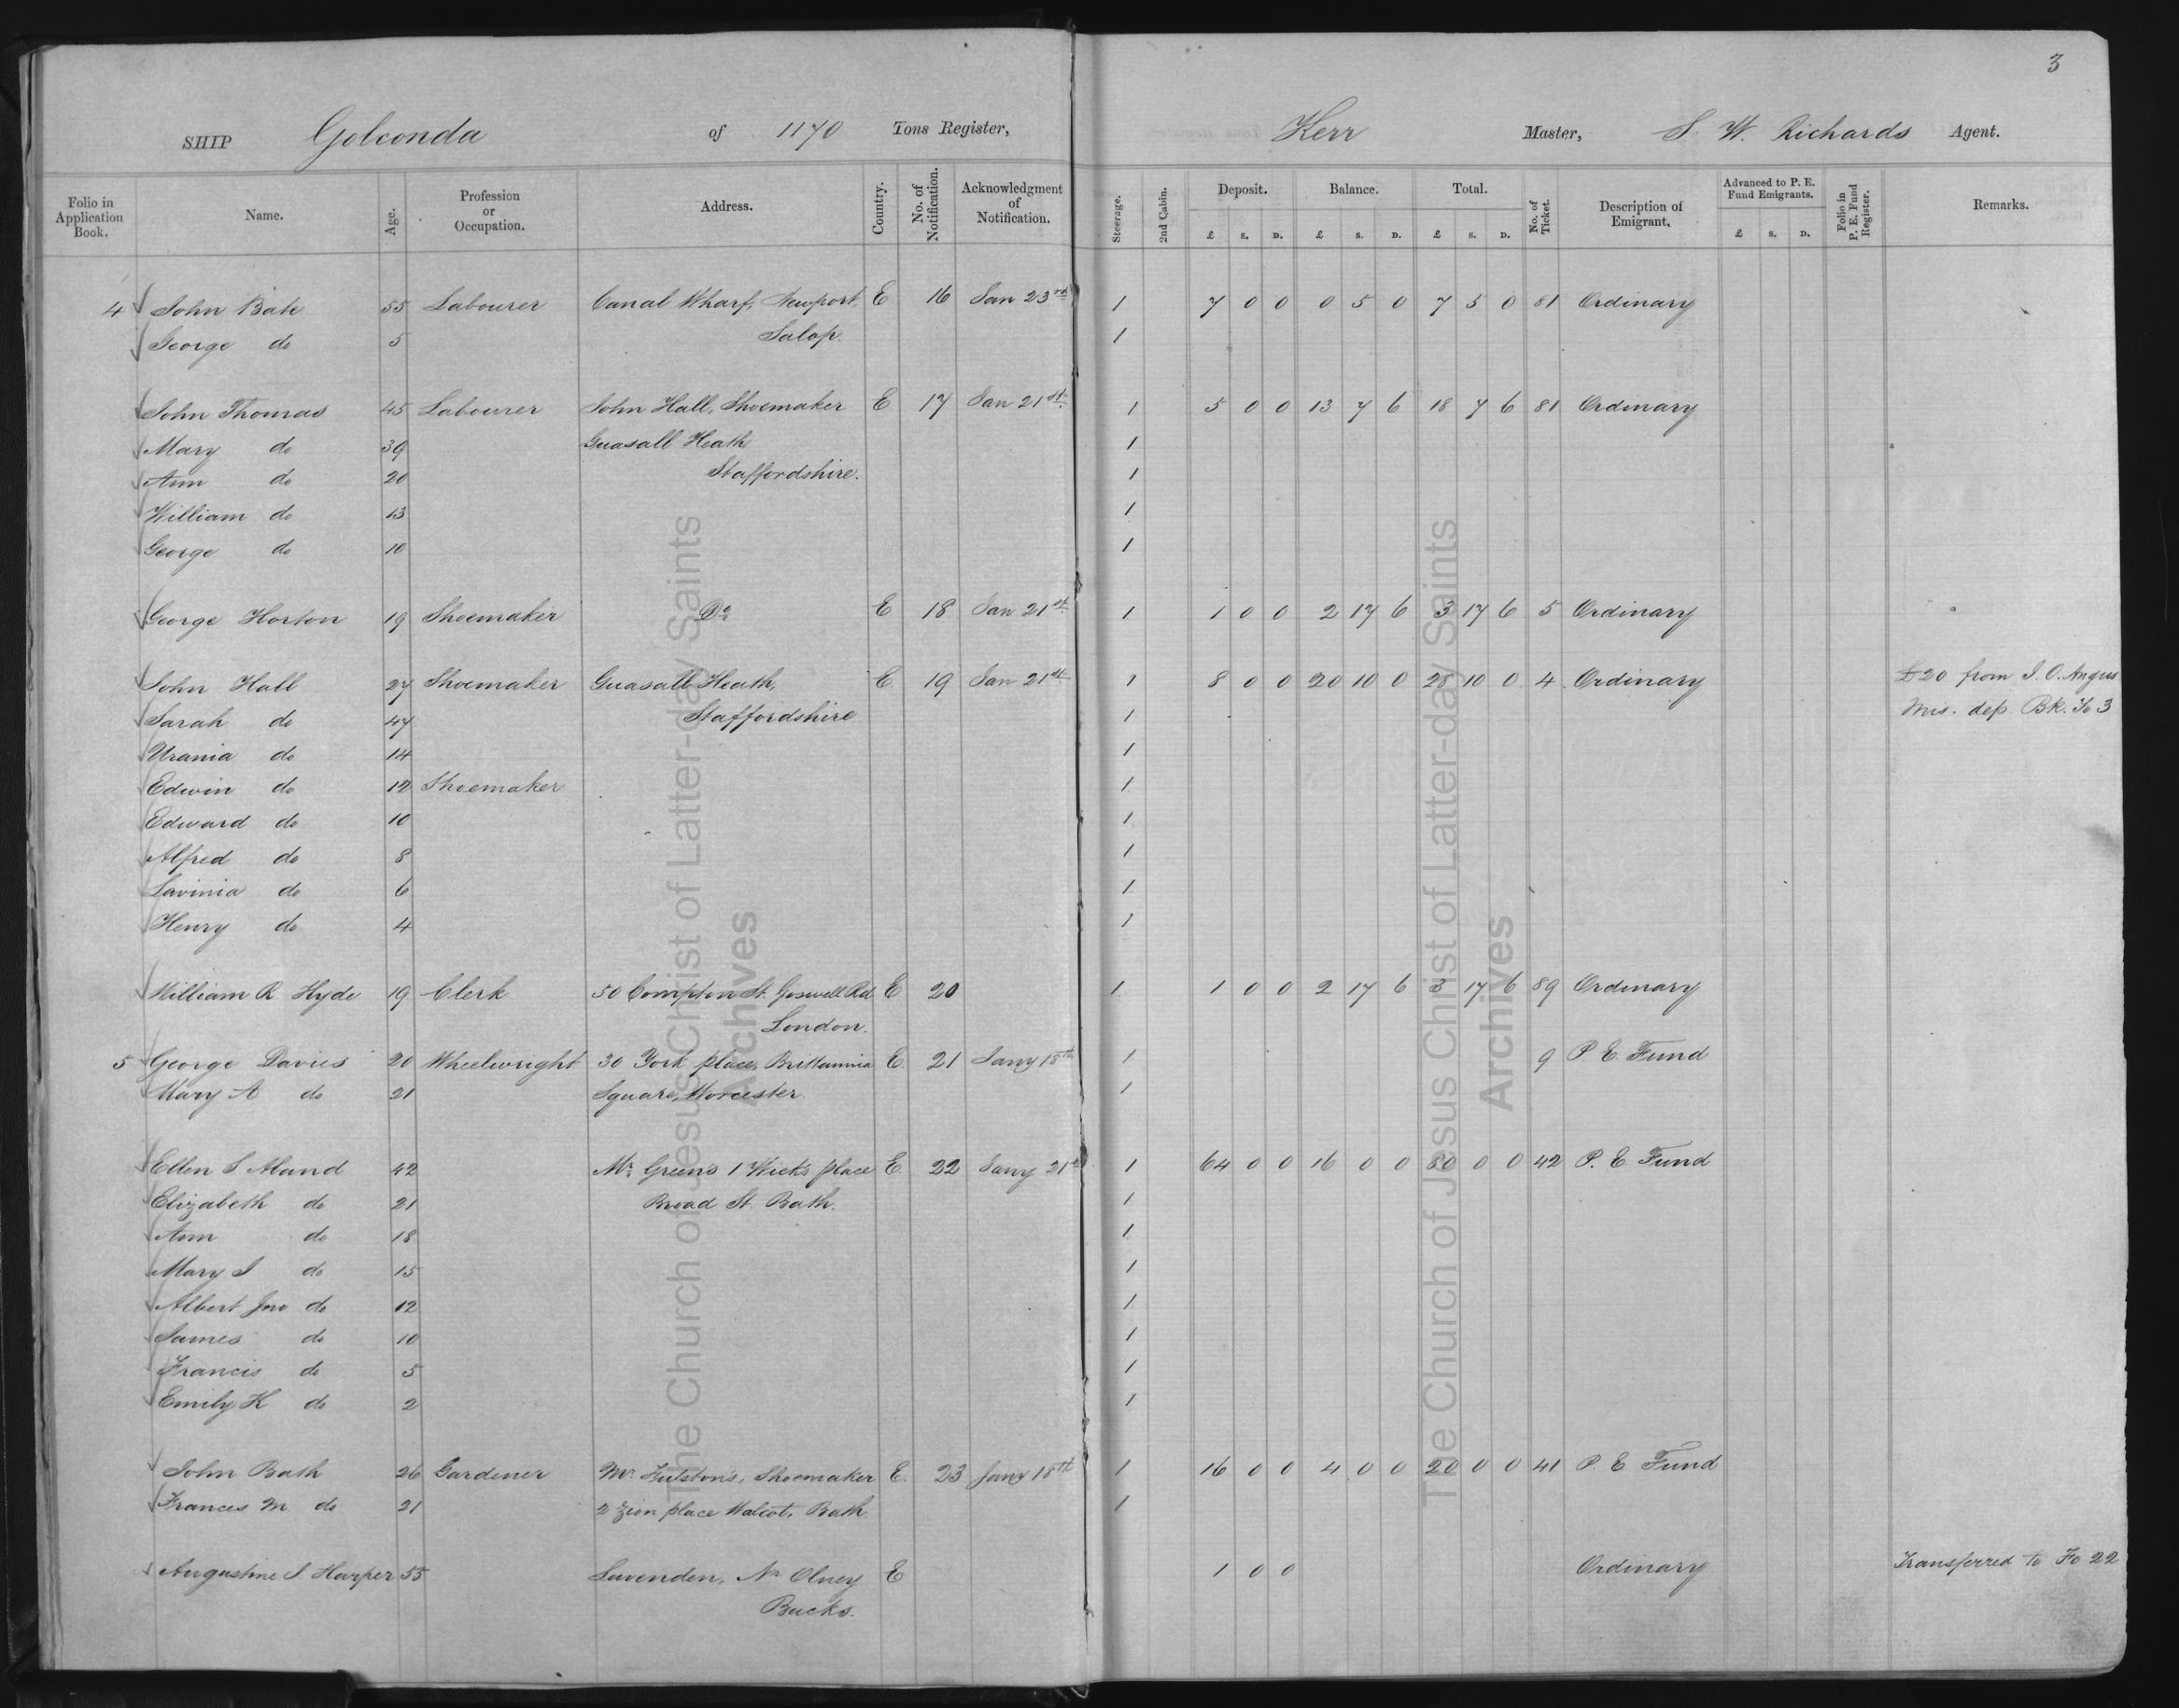 3
SHIP Golconda of 1170 Tons Register, Kerr Master, S. W. Richards Agent.
Folio in Application Book. Name. Age. Profession or Occupation. Address. Country. No. of Notification. Acknowledgment of Notification. Steerage. 2nd Cabin. Deposit. £ S. D. Balance. £ S. D. Total. £ S. D. No. of Ticket. Description of Emigrant. Advanced to P. E. Fund Emigrants. £ S. D. Folio in P. E. Fund Register. Remarks.
4 John Bate 55 Labourer Canal Wharf, Newport, E 16 Jan 23rd 1 7 0 0 0 5 0 7 5 0 81 Ordinary
George do 5 Salop. 1
John Thomas 45 Labourer John Hall, Shoemaker E 17 Jan 21st 1 5 0 0 13 7 6 18 7 6 81 Ordinary
Mary do 39 Guasall Heath 1
Ann do 20 Staffordshire. 1
William do 13 1
George do 10 1
George Horton 19 Shoemaker Do E 18 Jan 21st 1 1 0 0 2 17 6 3 17 6 5 Ordinary
John Hall 27 Shoemaker Guasall Heath, E 19 Jan 21st 1 8 0 0 20 10 0 28 10 0 4 Ordinary £20 from J. O. Angus
Sarah do 47 Staffordshire 1 Mis. dep. Bk. Fo 3
Urania do 14 1
Edwin do 12 Shoemaker 1
Edward do 10 1
Alfred do 8 1
Lavinia do 6 1
Henry do 4 1
William R Hyde 19 Clerk 50 Compton St. Goswell Rd E 20 1 1 0 0 2 17 6 3 17 6 89 Ordinary
London.
5 George Davies 20 Wheelwright 30 York place, Brittannia E. 21 Jany 18th 1 9 P. E. Fund
Mary A do 21 Square, Worcester. 1
Ellen S Maund 42 Mr Green's 1 Wicks place E. 22 Jany 21st 1 64 0 0 16 0 0 80 0 0 42 P. E Fund
Elizabeth do 21 Broad St. Bath. 1
Ann do 18 1
Mary J do 15 1
Albert Jno do 12 1
James do 10 1
Francis do 5 1
Emily K do 2 1
John Bath 26 Gardener Mr. Shoemaker E. 23 Jany 18th 1 16 0 0 4 0 0 20 0 0 41 P. E Fund
Frances M do 21 2 Zion place Walcot, Bath. 1
Augustine J Harper 55 Lavenden, Nr Olney E 1 0 0 Ordinary Transferred to Fo 22
Bucks.
The Church of Jesus Christ of Latter-day Saints
Archives
The Church of Jesus Christ of Latter-day Saints
Archives